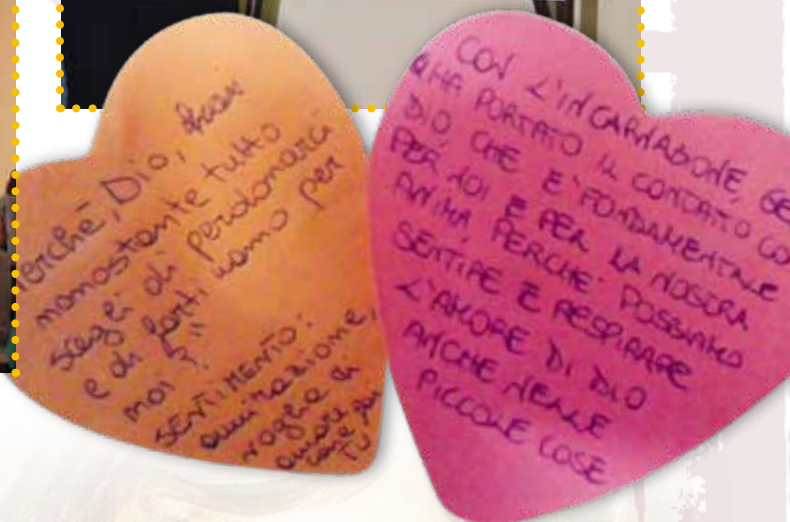 erchè, Dio,
nonostante tutto
scegli di perdonarci
e di farti uomo per
noi ?"
SENTIMENTO:
ammirazione,
voglia di
amare
come
TU
CON L'INCARNAZIONE, GE
HA PORTATO IL CONTATO CO
DIO CHE E' FONDAMENTALE
PER NOI E PER LA NOSTRA
ANIMA PERCHE' POSSIAMO
SENTIRE E RESPIRARE
L'AMORE DI DIO
ANCHE NELLE
PICCOLE COSE